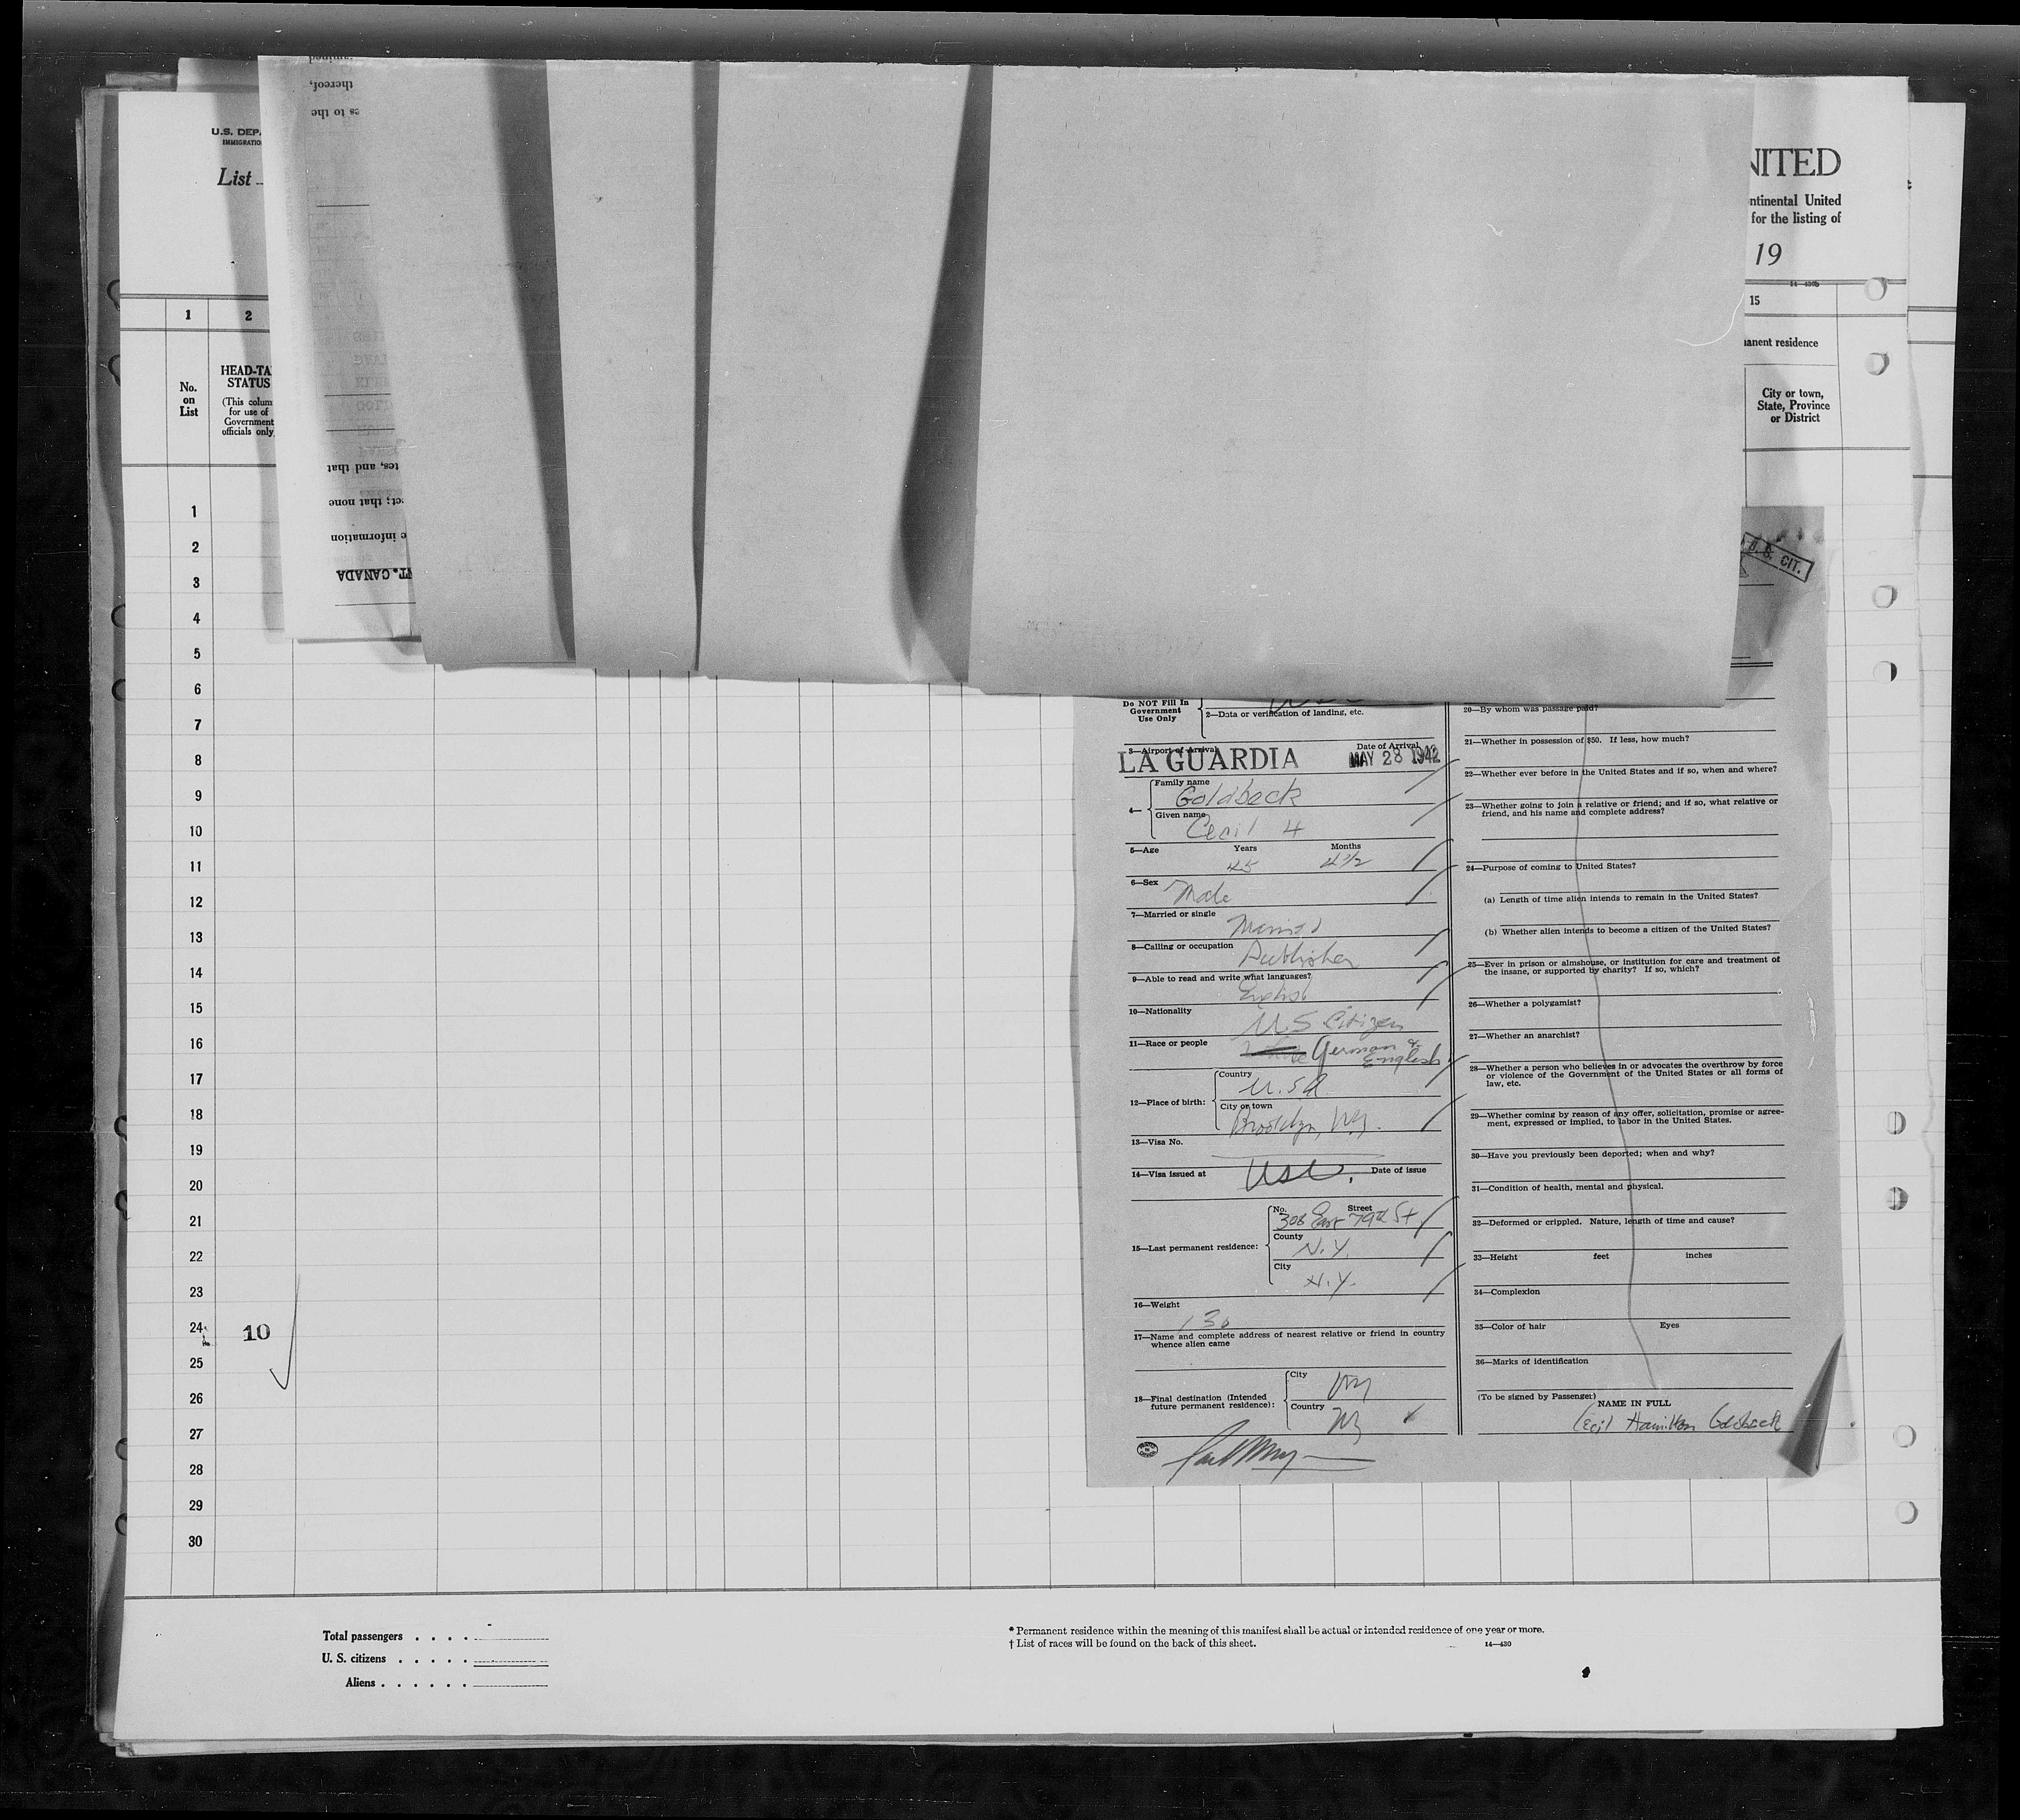 U.S. DEP
IMMIGRATIO
List
NITED
ntinental United
for the listing of
19
1
2
15
anent residence
No.
on
List
HEAD-TA
STATUS
(This colum
for use of
Government
officials only
City or town,
State, Province
or District
thereof,
es to the
tes, and that
ct; that none
e information
T. CANADA
1
2
3
4
5
6
7
8
9
10
11
12
13
14
15
16
17
18
19
20
21
22
23
24
10
25
26
27
28
29
30
U.S. CIT.
Do NOT Fill In
Government
Use Only
2—Data or verification of landing, etc.
3—Airport of Arrival
Date of Arrival
LA GUARDIA
MAY 28 1942
4—
Family name
Goldbeck
Given name
Cecil H
5—Age
Years
Months
45
4 1/2
6—Sex
Male
7—Married or single
Married
8—Calling or occupation
Publisher
9—Able to read and write what languages?
English
10—Nationality
U.S Citizen
11—Race or people
German &
English
12—Place of birth:
Country
U.S.A
City or town
Brooklyn, N.Y.
13—Visa No.
14—Visa issued at
USC
Date of issue
15—Last permanent residence:
No.
Street
308 East 79th St
County
N.Y.
City
N.Y.
16—Weight
130
17—Name and complete address of nearest relative or friend in country
whence alien came
18—Final destination (Intended
future permanent residence):
City
NY
Country
20—By whom was passage paid?
21—Whether in possession of $50. If less, how much?
22—Whether ever before in the United States and if so, when and where?
23—Whether going to join a relative or friend; and if so, what relative or
friend, and his name and complete address?
24—Purpose of coming to United States?
(a) Length of time alien intends to remain in the United States?
(b) Whether alien intends to become a citizen of the United States?
25—Ever in prison or almshouse, or institution for care and treatment of
the insane, or supported by charity? If so, which?
26—Whether a polygamist?
27—Whether an anarchist?
28—Whether a person who believes in or advocates the overthrow by force
or violence of the Government of the United States or all forms of
law, etc.
29—Whether coming by reason of any offer, solicitation, promise or agree-
ment, expressed or implied, to labor in the United States.
30—Have you previously been deported; when and why?
31—Condition of health, mental and physical.
32—Deformed or crippled. Nature, length of time and cause?
33—Height feet inches
34—Complexion
35—Color of hair Eyes
36—Marks of identification
(To be signed by Passenger)
NAME IN FULL
Cecil Hamilton Goldbeck
Total passengers . . . .
U. S. citizens . . . . .
Aliens . . . . . .
* Permanent residence within the meaning of this manifest shall be actual or intended residence of one year or more.
† List of races will be found on the back of this sheet.
14—430